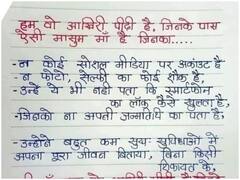 हम वो आखिरी पीढ़ी है, जिनके पास
ऐसी मासुम माँ है जिनका.....
-न कोई सोशल मीडिया पर अकाउंट है
-न फोटो, सेल्फी का कोई शौक है,
-उन्हे ये भी नही पता कि स्मार्टफोन
का लॉक कैसे खुलता है,
-जिनको ना अपनी जन्मतिथि का पता है,
-उन्होंने बहुत कम सुख सुविधाओं में
अपना पूरा जीवन बिताया, बिना किसी
शिकायत के,